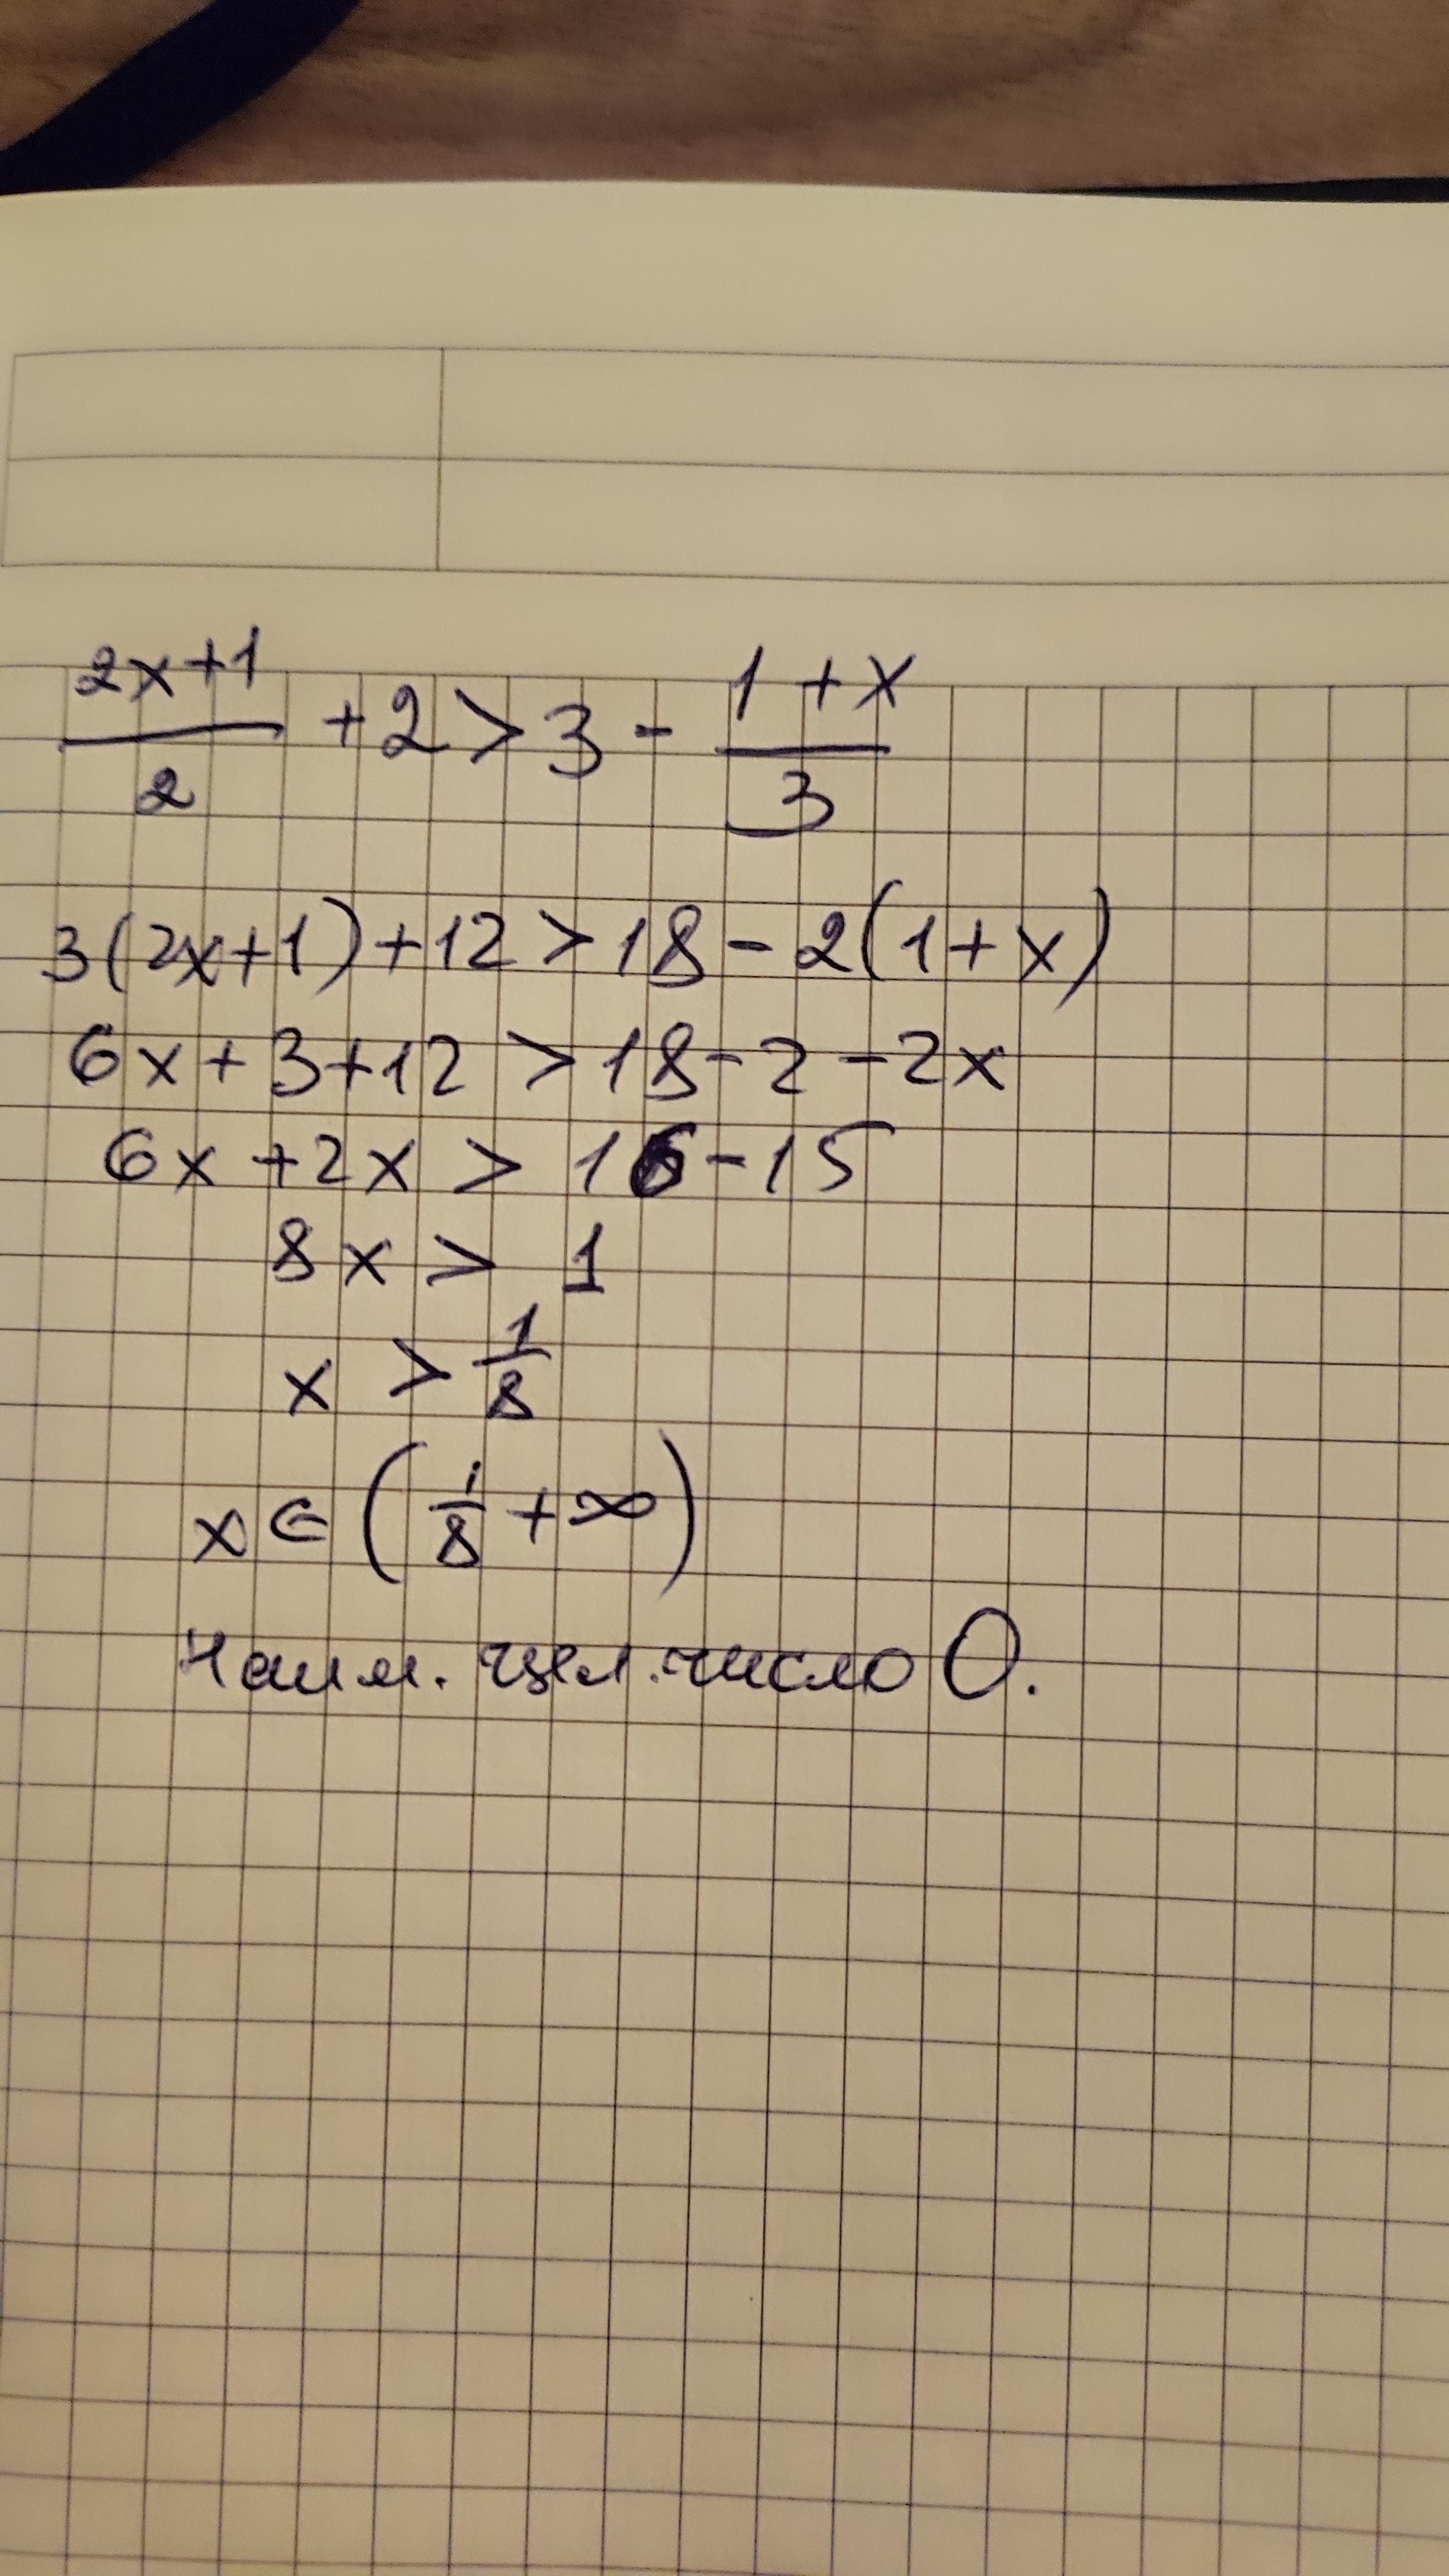 (2x+1)/2 + 2 > 3 - (1+x)/3
3(2x+1)+12 > 18 - 2(1+x)
6x + 3 + 12 > 18 - 2 - 2x
6x + 2x > 16 - 15
8x > 1
x > 1/8
x ∈ (1/8 + ∞)
Наим. цел. число 0.